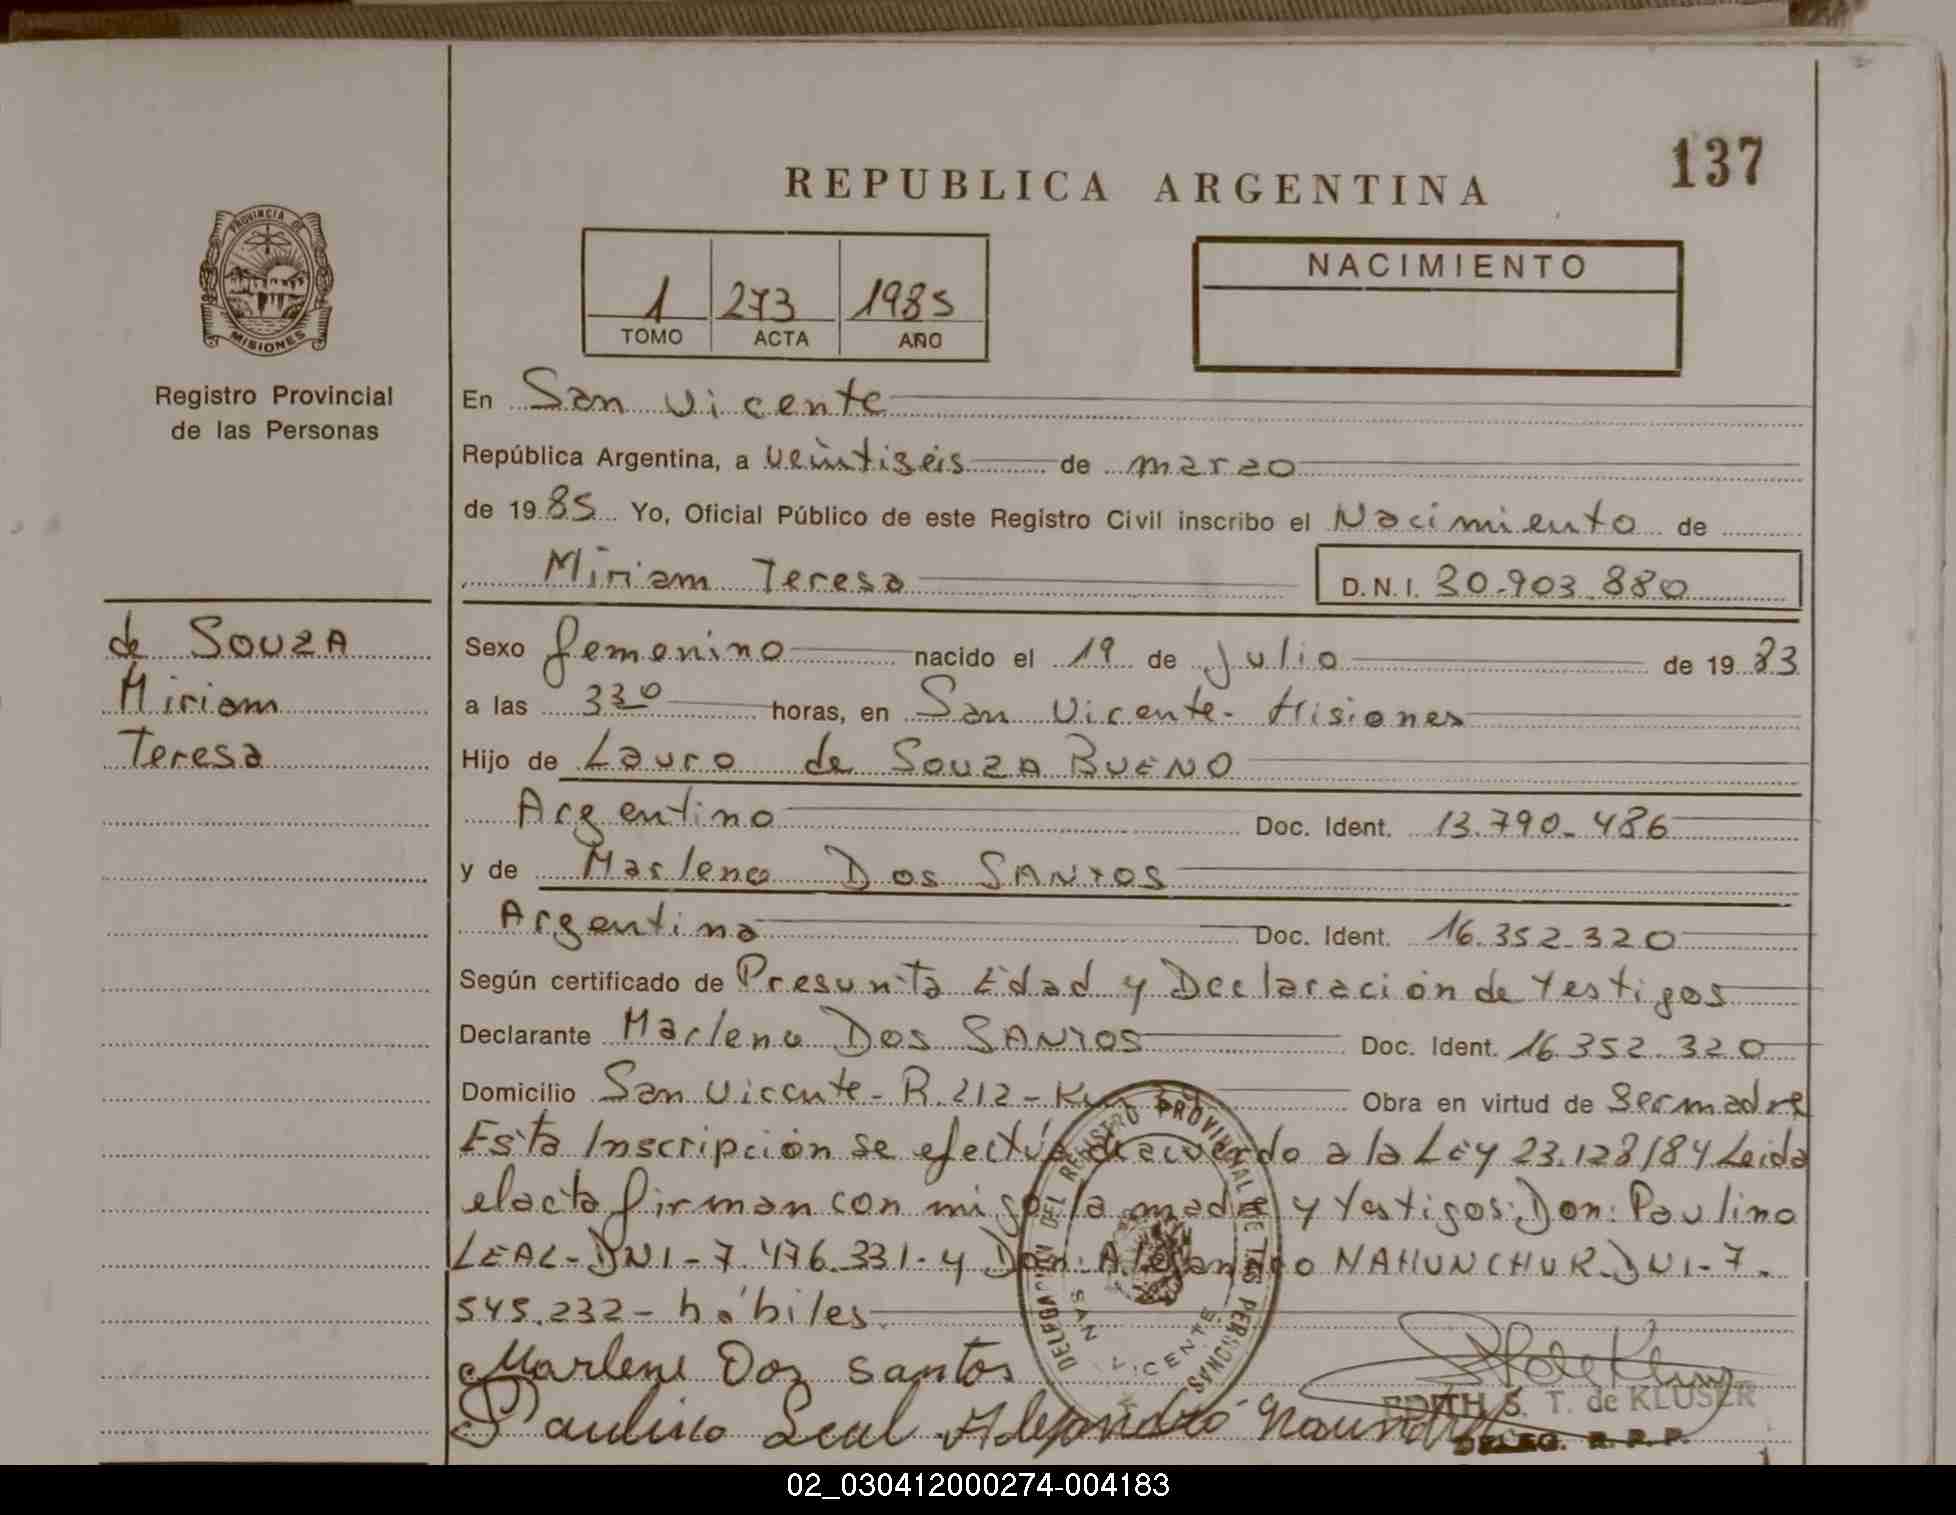 137
REPUBLICA ARGENTINA
PROVINCIA DE
MISIONES
Registro Provincial
de las Personas
1 273 1985
TOMO ACTA AÑO
NACIMIENTO
En San Vicente
República Argentina, a veintiseis de marzo
de 1985 Yo, Oficial Público de este Registro Civil inscribo el Nacimiento de
Miriam Teresa D.N.I. 30.903.880
de SOUZA
Miriam
Teresa
Sexo femenino nacido el 19 de Julio de 1983
a las 330 horas, en San Vicente - Misiones
Hijo de Lauro de SOUZA BUENO
Argentino Doc. Ident. 13.790.486
y de Marlene DOS SANTOS
Argentina Doc. Ident. 16.352.320
Según certificado de Presunta Edad y Declaración de testigos
Declarante Marlene DOS SANTOS Doc. Ident. 16.352.320
Domicilio San Vicente - R. 212 - Obra en virtud de Ser madre
Esta Inscripción se efectúa de acuerdo a la LEY 23.128/84 Leida
el acta firman con migo la madre y testigos: Don: Paulino
LEAL - DNI - 7.476.331 - y Don: Alejandro NAHUNCHUK. DNI - 7.
545.232 - hábiles.
DELEGACION DEL REGISTRO PROVINCIAL DE LAS PERSONAS
SAN VICENTE
Marlene Dos santos
Paulino Leal Alejandro
EDITH S. T. de KLUSER
DELEG. R. P. P.
02_030412000274-004183